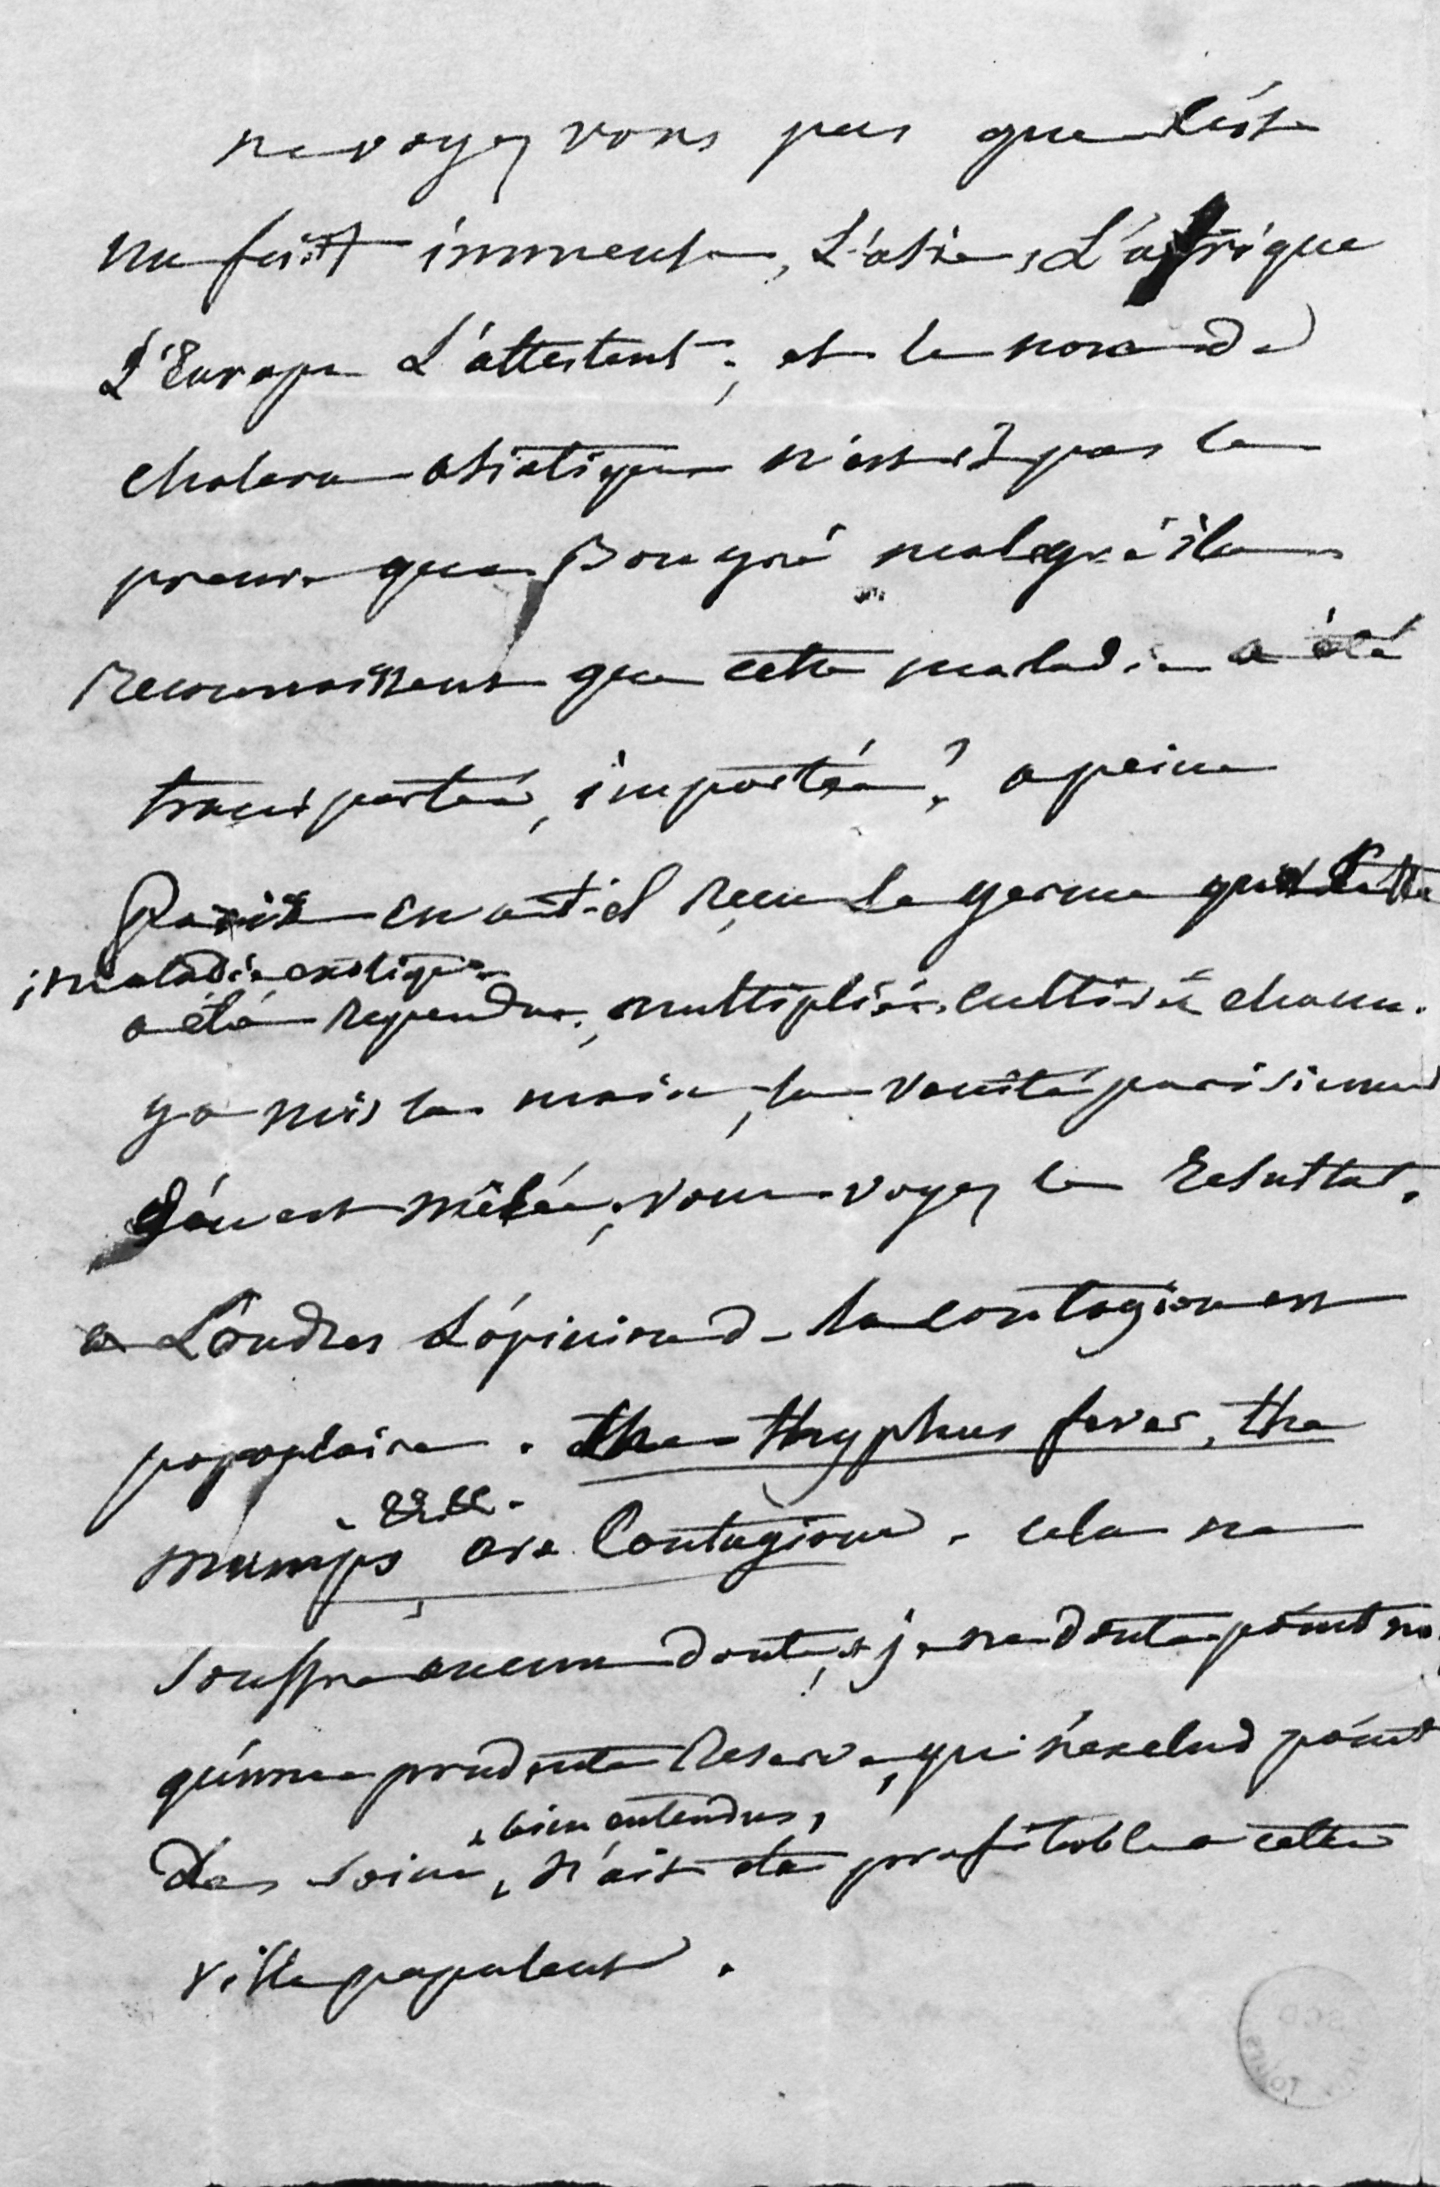 ne voyez vous pas que c'est
un fait immense, L'asie, L'afrique
L'Europe L'attestent; et le nom de
cholera asiatique n'est il pas la
preuve que Bon gré malgré ils
reconnaissent que cette maladie a été
transportée, importée? a peine
Paris en a-t-il reçu Le germe que cette
maladie exotique
a été rependue, multipliée, cultivée chacun
y a mis la main, la vanité parisienne
s'en est mêlée; vous voyez le resultat.
a Londres L'opinion de la contagion est
populaire. the thyphus fever, the
mumps, are Contagious. cela ne
souffre aucun doute, et je ne doute point
qu'une prudente Reserve, qui n'exclud point
, bien entendus,
des soins, n'ait été profitable a cette
ville populeuse.